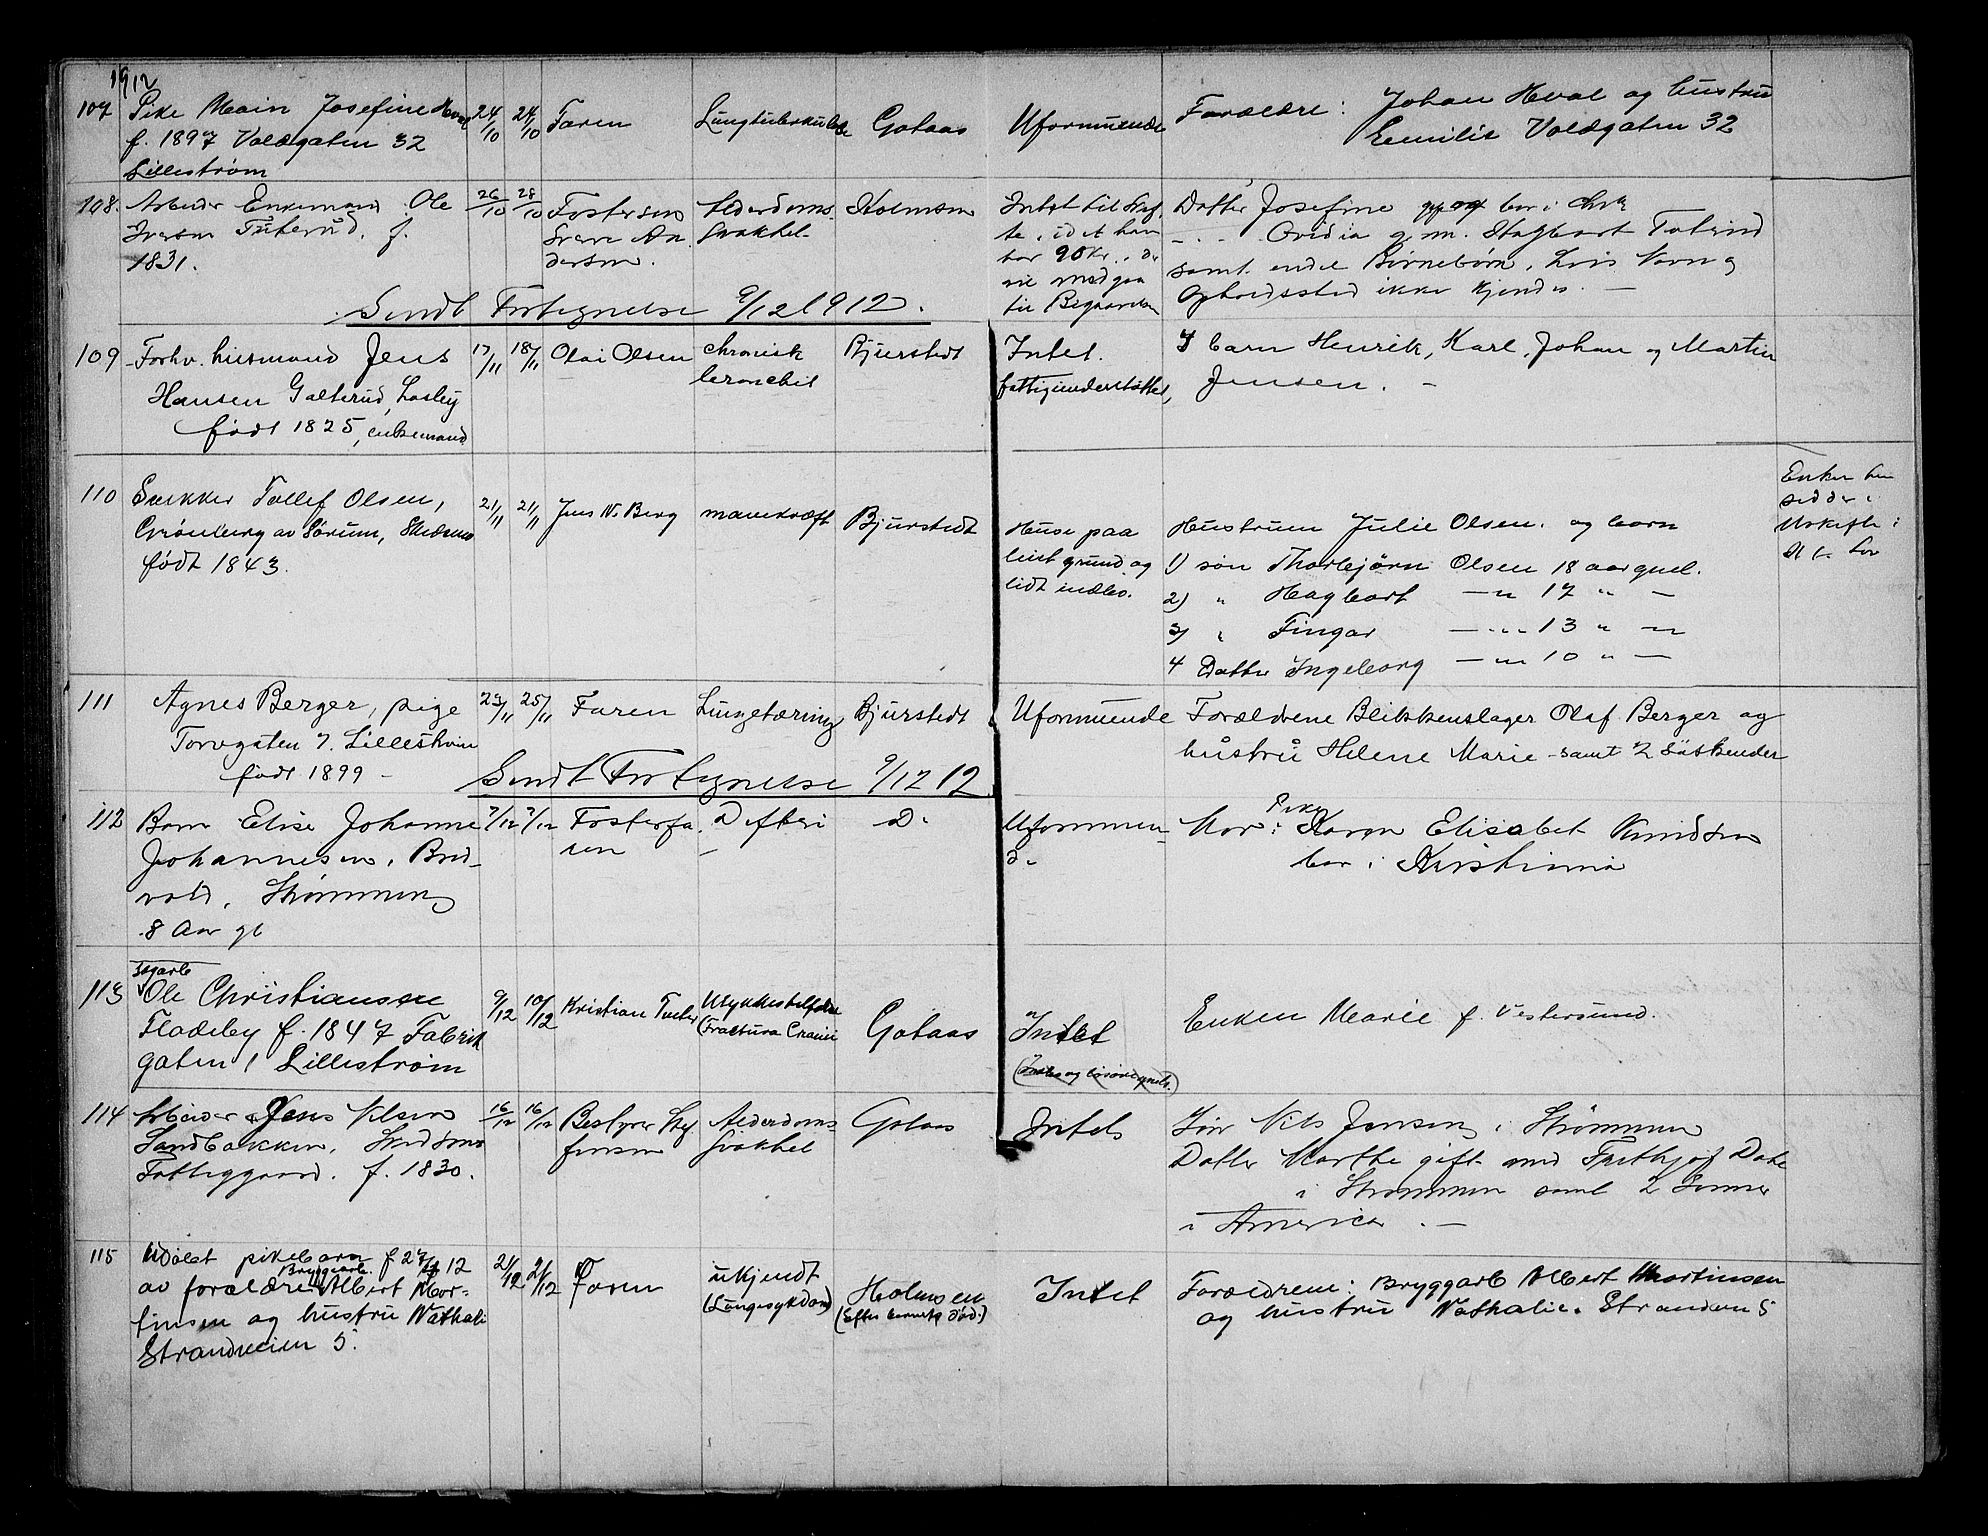 1912
107 Pike Main Josefine Hval 24/10 24/10 Faren Lungtuberkulose Gotaas Uformuende Forældre: Johan Hval og hustru
f. 1897 Voldgaten 32 Emilie Voldgaten 32
Lillestrøm
108. Arbeider Enkemand Ole 26/10 28/10 Fostersøn Alderdoms- Holmsen Intet til Skif- Datter Josefine bor i
Iversen Tuterud. f. Sverre An- svakhet te, idet han Ovidia g. m. Hagbart
1831. dersen. har 90 kr., de samt endel Børnebørn, hvis Navn og
vil medgaa Opholdssted ikke kjendes. —
til Begravelsen
Sendt Fortegnelse 9/12 1912.
109 Forhv. husmand Jens 17/11 18/11 Olai Olsen chronisk Bjurstedt Intet. 4 barn Henrik, Karl, Johan og Martin
Hansen Galterud, Losby bronchit fattigunderstøttet, Jensen. —
født 1825, enkemand
110 Snekker Tollef Olsen, 21/11 21/11 Jens N. Berg mavekræft Bjurstedt Huse paa Hustruen Julie Olsen. og barn Enken
Grönberg av Sörum, Skedsmo leiet grund og 1) søn Thorbjørn Olsen 18 aar gml. sidder i
født 1843. lidt indbo. 2) " Hagbart — " 17 " — Uskifte i
3) " Fingar — " 13 " —
4 Datter Ingeborg — " 10 " —
111 Agnes Berger, pige 23/11 25/11 Faren Lungetæring Bjurstedt Uformuende Forældrene Blikkenslager Olaf Berger og
Torvgaten 7. Lillestrøm hustru Helene Marie - samt 2 Söskender
født 1899 —
Sendt Fortegnelse 9/12 12
112 Barn Elise Johanne 7/12 7/12 Fosterfa- Difteri D. Uformuen- Mor: Pike Karen Elisabet Knudsen
Johannesen, Bred- ren — de bor i Kristiania
vold, Strømmen
8 Aar gl
113 Sagarb Ole Christiansen 9/12 10/12 Kristian Ulykkestilfælde Gotaas Intet Enken Marie f. Vestersund.
Fladeby f. 1847 Fabrik (Fractura Cranii
gaten 1 Lillestrøm (Indbo og løsøre
114 Arbeider Jens Nilsen 16/12 16/12 Bestyrer Stef- Alderdoms- Gotaas Intet Søn Nils Jensen i Strømmen
Sandbakken, Skedsmo fensen svakhet Datter Marthe gift med Frithjof
Fattiggaard. f. 1830. i Strømmen samt 2 Sønner
i America. —
115 Udøbt pikebarn f 27/11 12 21/12 21/12 Faren ukjendt Holmsen Intet Forældrene: Bryggarb Albert Martinsen
av forældre Bryggearb. Albert Mar- (Lungesykdom) (Efter barnets død.) og hustru Nathalie. Strandvn 5
tinsen og hustru Nathali
Strandveien 5.